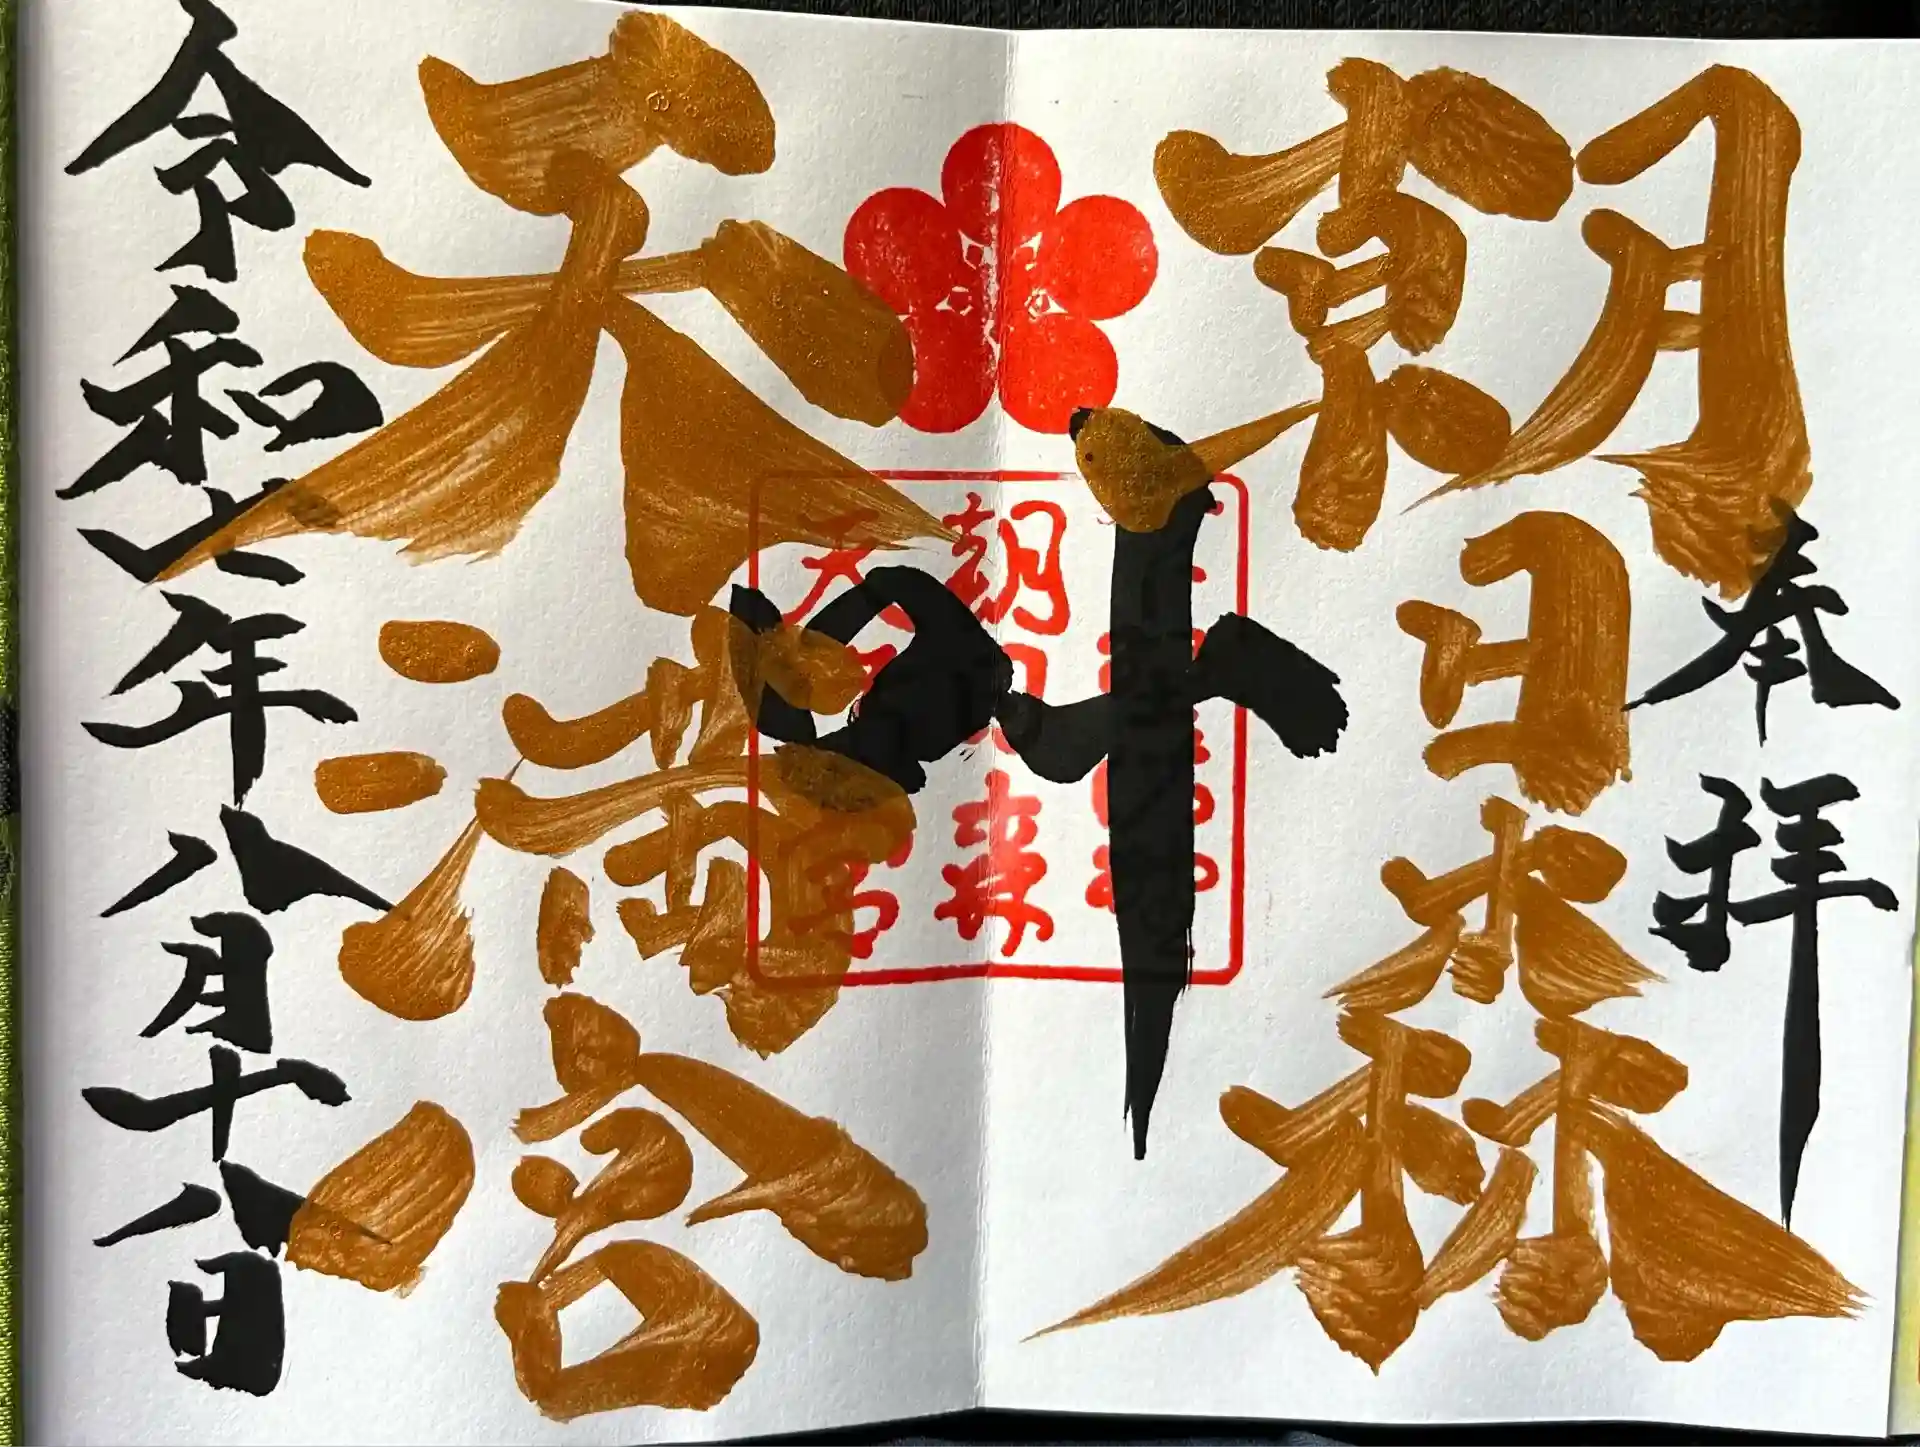 奉拝
朝日森
天満宮
叶
朝日森
天満宮
令和七年八月十八日